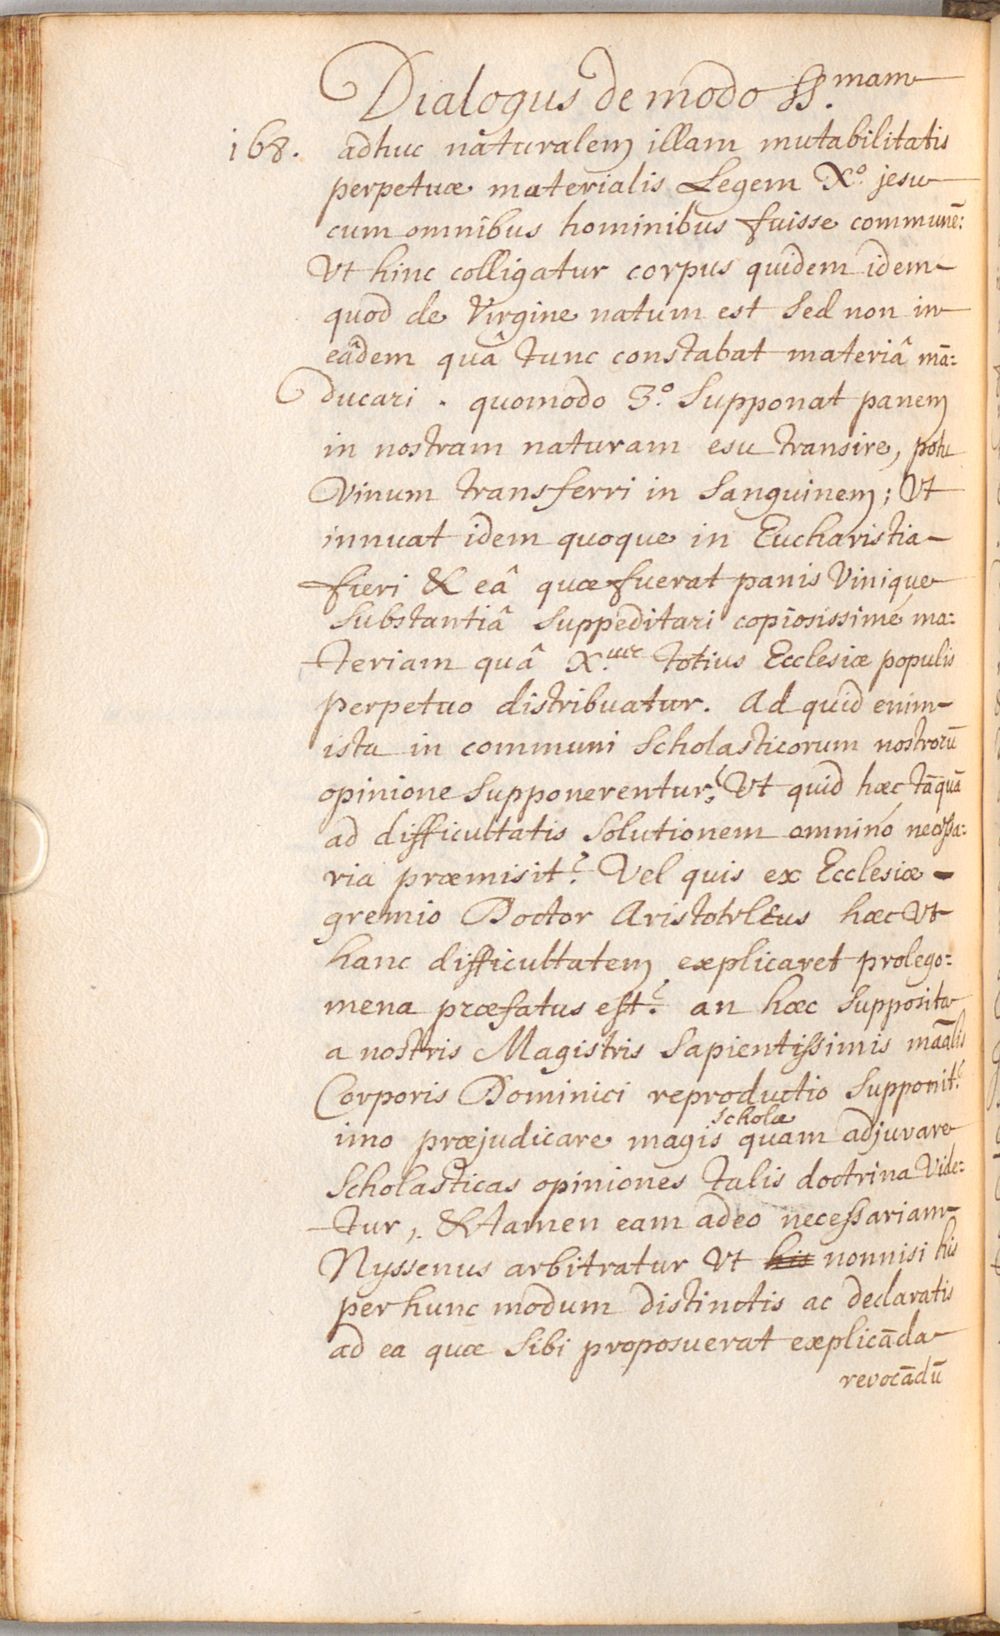 Dialogus de modo SS.mam
168. adhuc naturalem illam mutabilitatis
perpetuæ materialis Legem Xo. jesu
cum omnibus hominibus fuisse commune᷉:
Vt hinc colligatur corpus quidem idem
quod de Virgine natum est Sed non in
eâdem quâ tunc constabat materiâ mā:
ducari. quomodo 3.o Supponat panem
in nostram naturam esu transire, potu
Vinum transferri in Sanguinem; Vt
innuat idem quoque in Eucharistia
fieri & eâ quæ fuerat panis Vinique
Substantiâ Suppeditari copiosissimé ma:
teriam quâ X.
totius Ecclesiæ populis
perpetuo distribuatur. Ad quid enim
ista in communi Scholasticorum nostrorū
opinione Supponerentur? Vt quid hæc tāquā
ad difficultatis Solutionem omninó necessa:
ria præmisit? Vel quis ex Ecclesiæ
gremio Doctor hæc Vt
hanc difficultatem explicaret prolego:
mena præfatus est? an hæc Supposita
a nostris Magistris Sapientissimis māalis
Corporis Dominici reproductio Supponit?
imo præjudicare magis quam adjuvare
Scholæ
Scholasticas opiniones talis doctrina Vide:
tur, & tamen eam adeo necessariam
Nyssenus arbitratur Vt his nonnisi his
per hunc modum distinctis ac declaratis
ad ea quæ Sibi proposuerat explicāda
revocādū